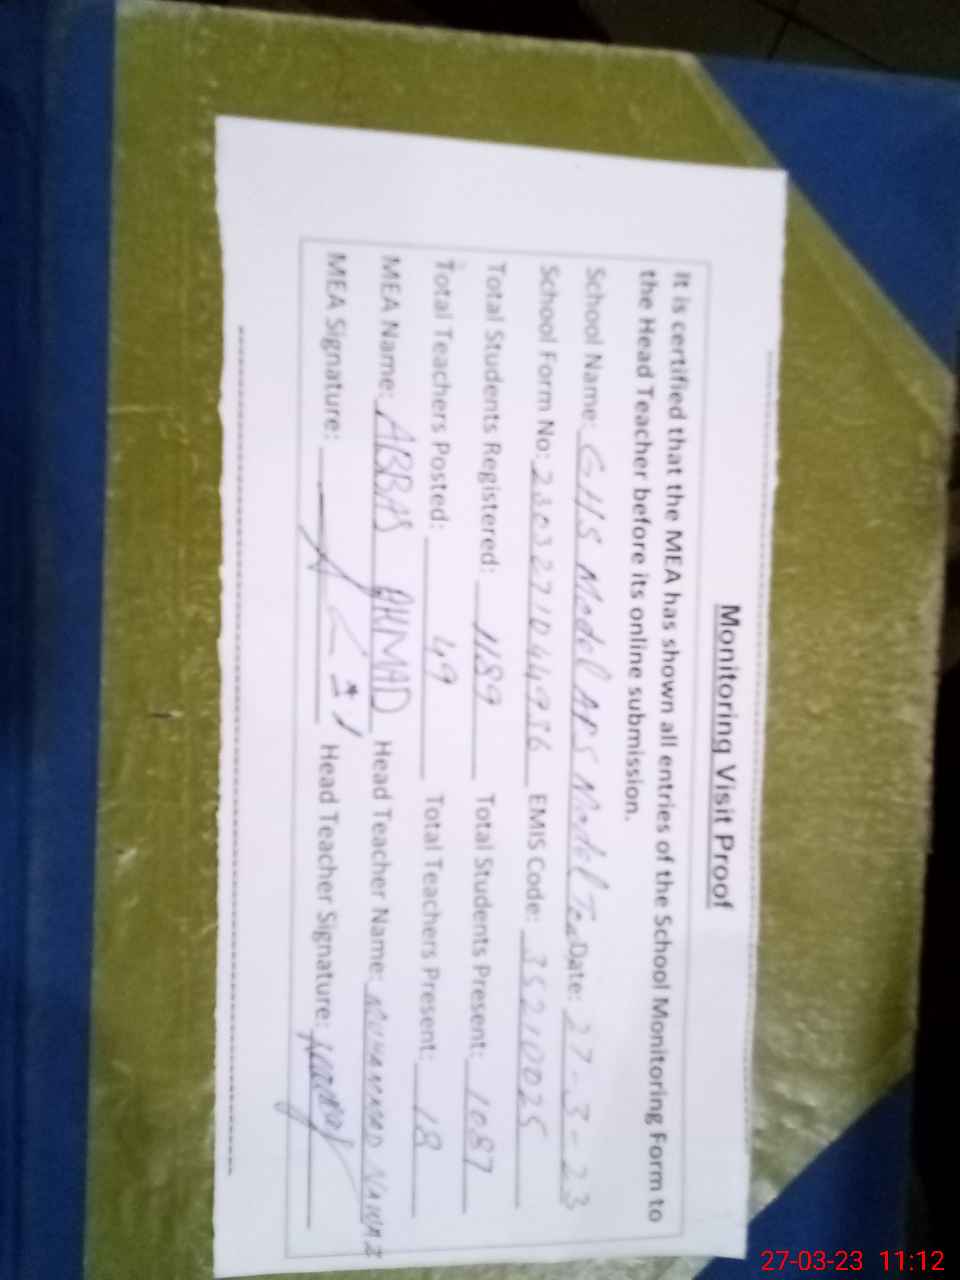 Monitoring Visit Proof
It is certified that the MEA has shown all entries of the School Monitoring Form to
the Head Teacher before its online submission.
School Name: GHS Model APS Model Date: 27-3-23
School Form No: EMIS Code: 35210025
Total Students Registered: 1189 Total Students Present: 1087
Total Teachers Posted: 49 Total Teachers Present: 18
MEA Name: ABBAS AHMAD Head Teacher Name: MUHAMMAD NAWAZ
MEA Signature: Head Teacher Signature:
27-03-23 11:12